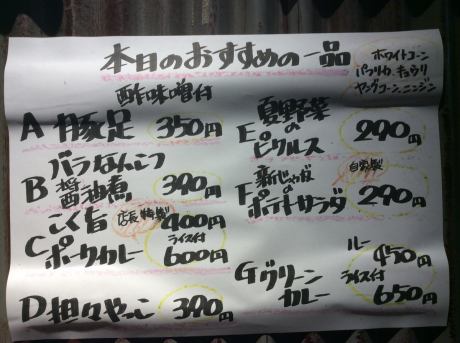 本日のおすすめの一品
ホワイトコーン
パプリカ、キュウリ
ヤングコーン、ニンジン
酢味噌付
A 豚足 350円
バラなんこつ
B 醤油煮 390円
こく旨 店長特製 400円
C ポークカレー ライス付 600円
D 担々やっこ 390円
夏野菜
E の
ピクルス 290円
新じゃが 自家製
F の
ポテトサラダ 290円
ルー 450円
G グリーンカレー ライス付 650円